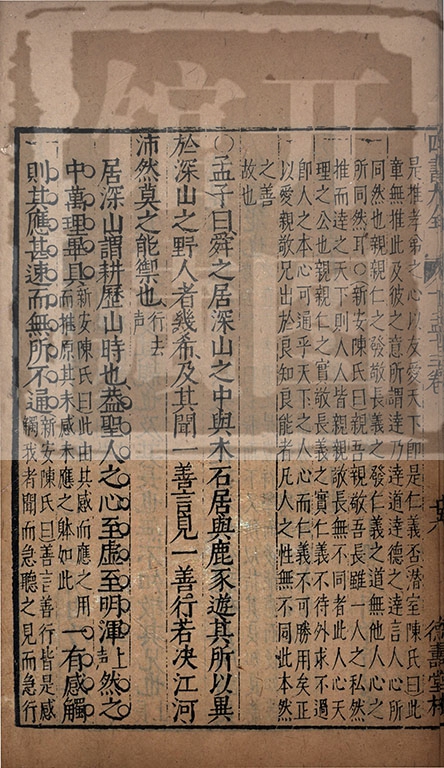 是推孝弟之心以友愛天下即是仁義否潛室陳氏曰此
章無推此及彼之意所謂達乃達道達德之達言人心所
同然也親親仁之發敬長義之發仁義之道無他人心之
所同然耳○新安陳氏曰親吾親敬吾長雖一人之私然
推而達之天下則人人皆親親敬長無不同者此人心天
理之公也親親仁之實敬長義之實仁義不待外求不過
即人之本心可通乎天下之人心而仁義不可勝用矣正
以愛親敬兄出於良知良能者凡人之性無不同此本然
之善
故也
○孟子曰舜之居深山之中與木石居與鹿豕遊其所以異
於深山之野人者幾希及其聞一善言見一善行若決江河
沛然莫之能禦也行去聲
居深山謂耕歷山時也蓋聖人之心至虛至明渾上聲然之
中萬理畢具新安陳氏曰此由其感而應之用而推原其未感未應之體如此一有感觸
則其應甚速而無所不通新安陳氏曰善言善行皆是感觸我者聞而急聽之見而急行